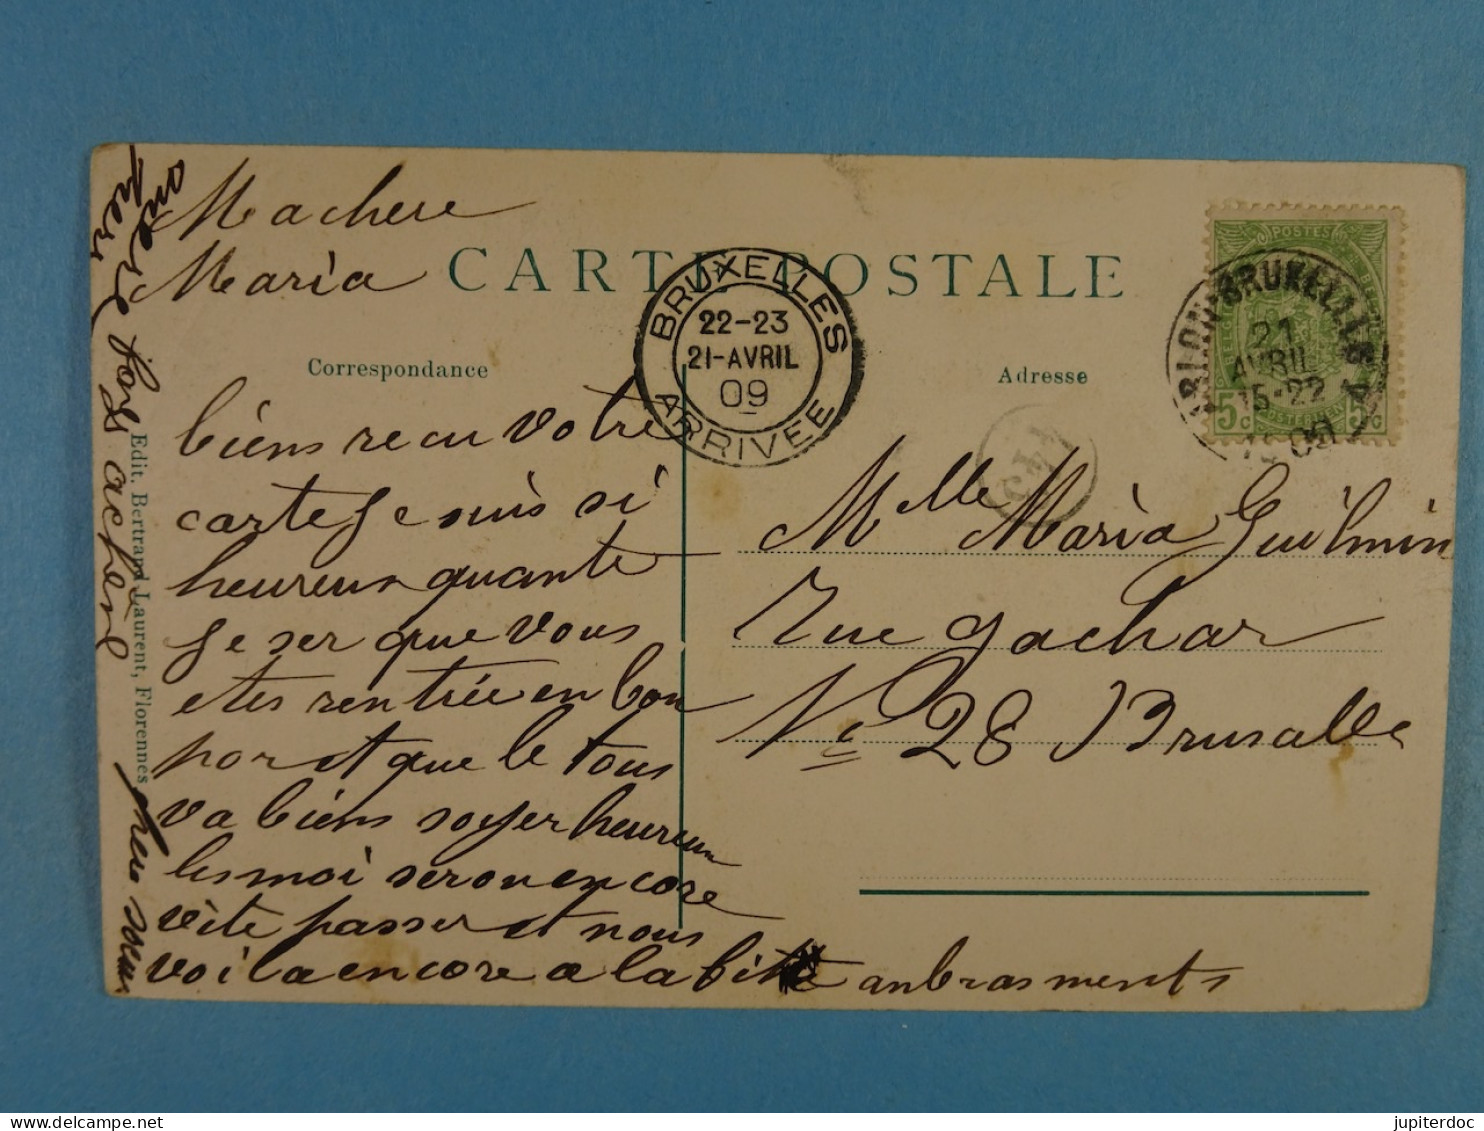 Machere
Maria
CARTE POSTALE
Correspondance
Adresse
BRUXELLES
22-23
21-AVRIL
09
ARRIVÉE
POSTES
BRUXELLES
21
AVRIL
15-22
5c 5c
biens recu votre
carte Je suis si
heureux quante
Je ser que vous
etes rentrée en bon
por et que le tous
va biens soyer heureux
les moi seron encore
vite passer et nous
voila encore a la bitte anbrasments
Mlle Maria Guilmin
Rue gachar
No 28 Brusalle
Edit. Bertrand Laurent, Florennes
jupiterdoc